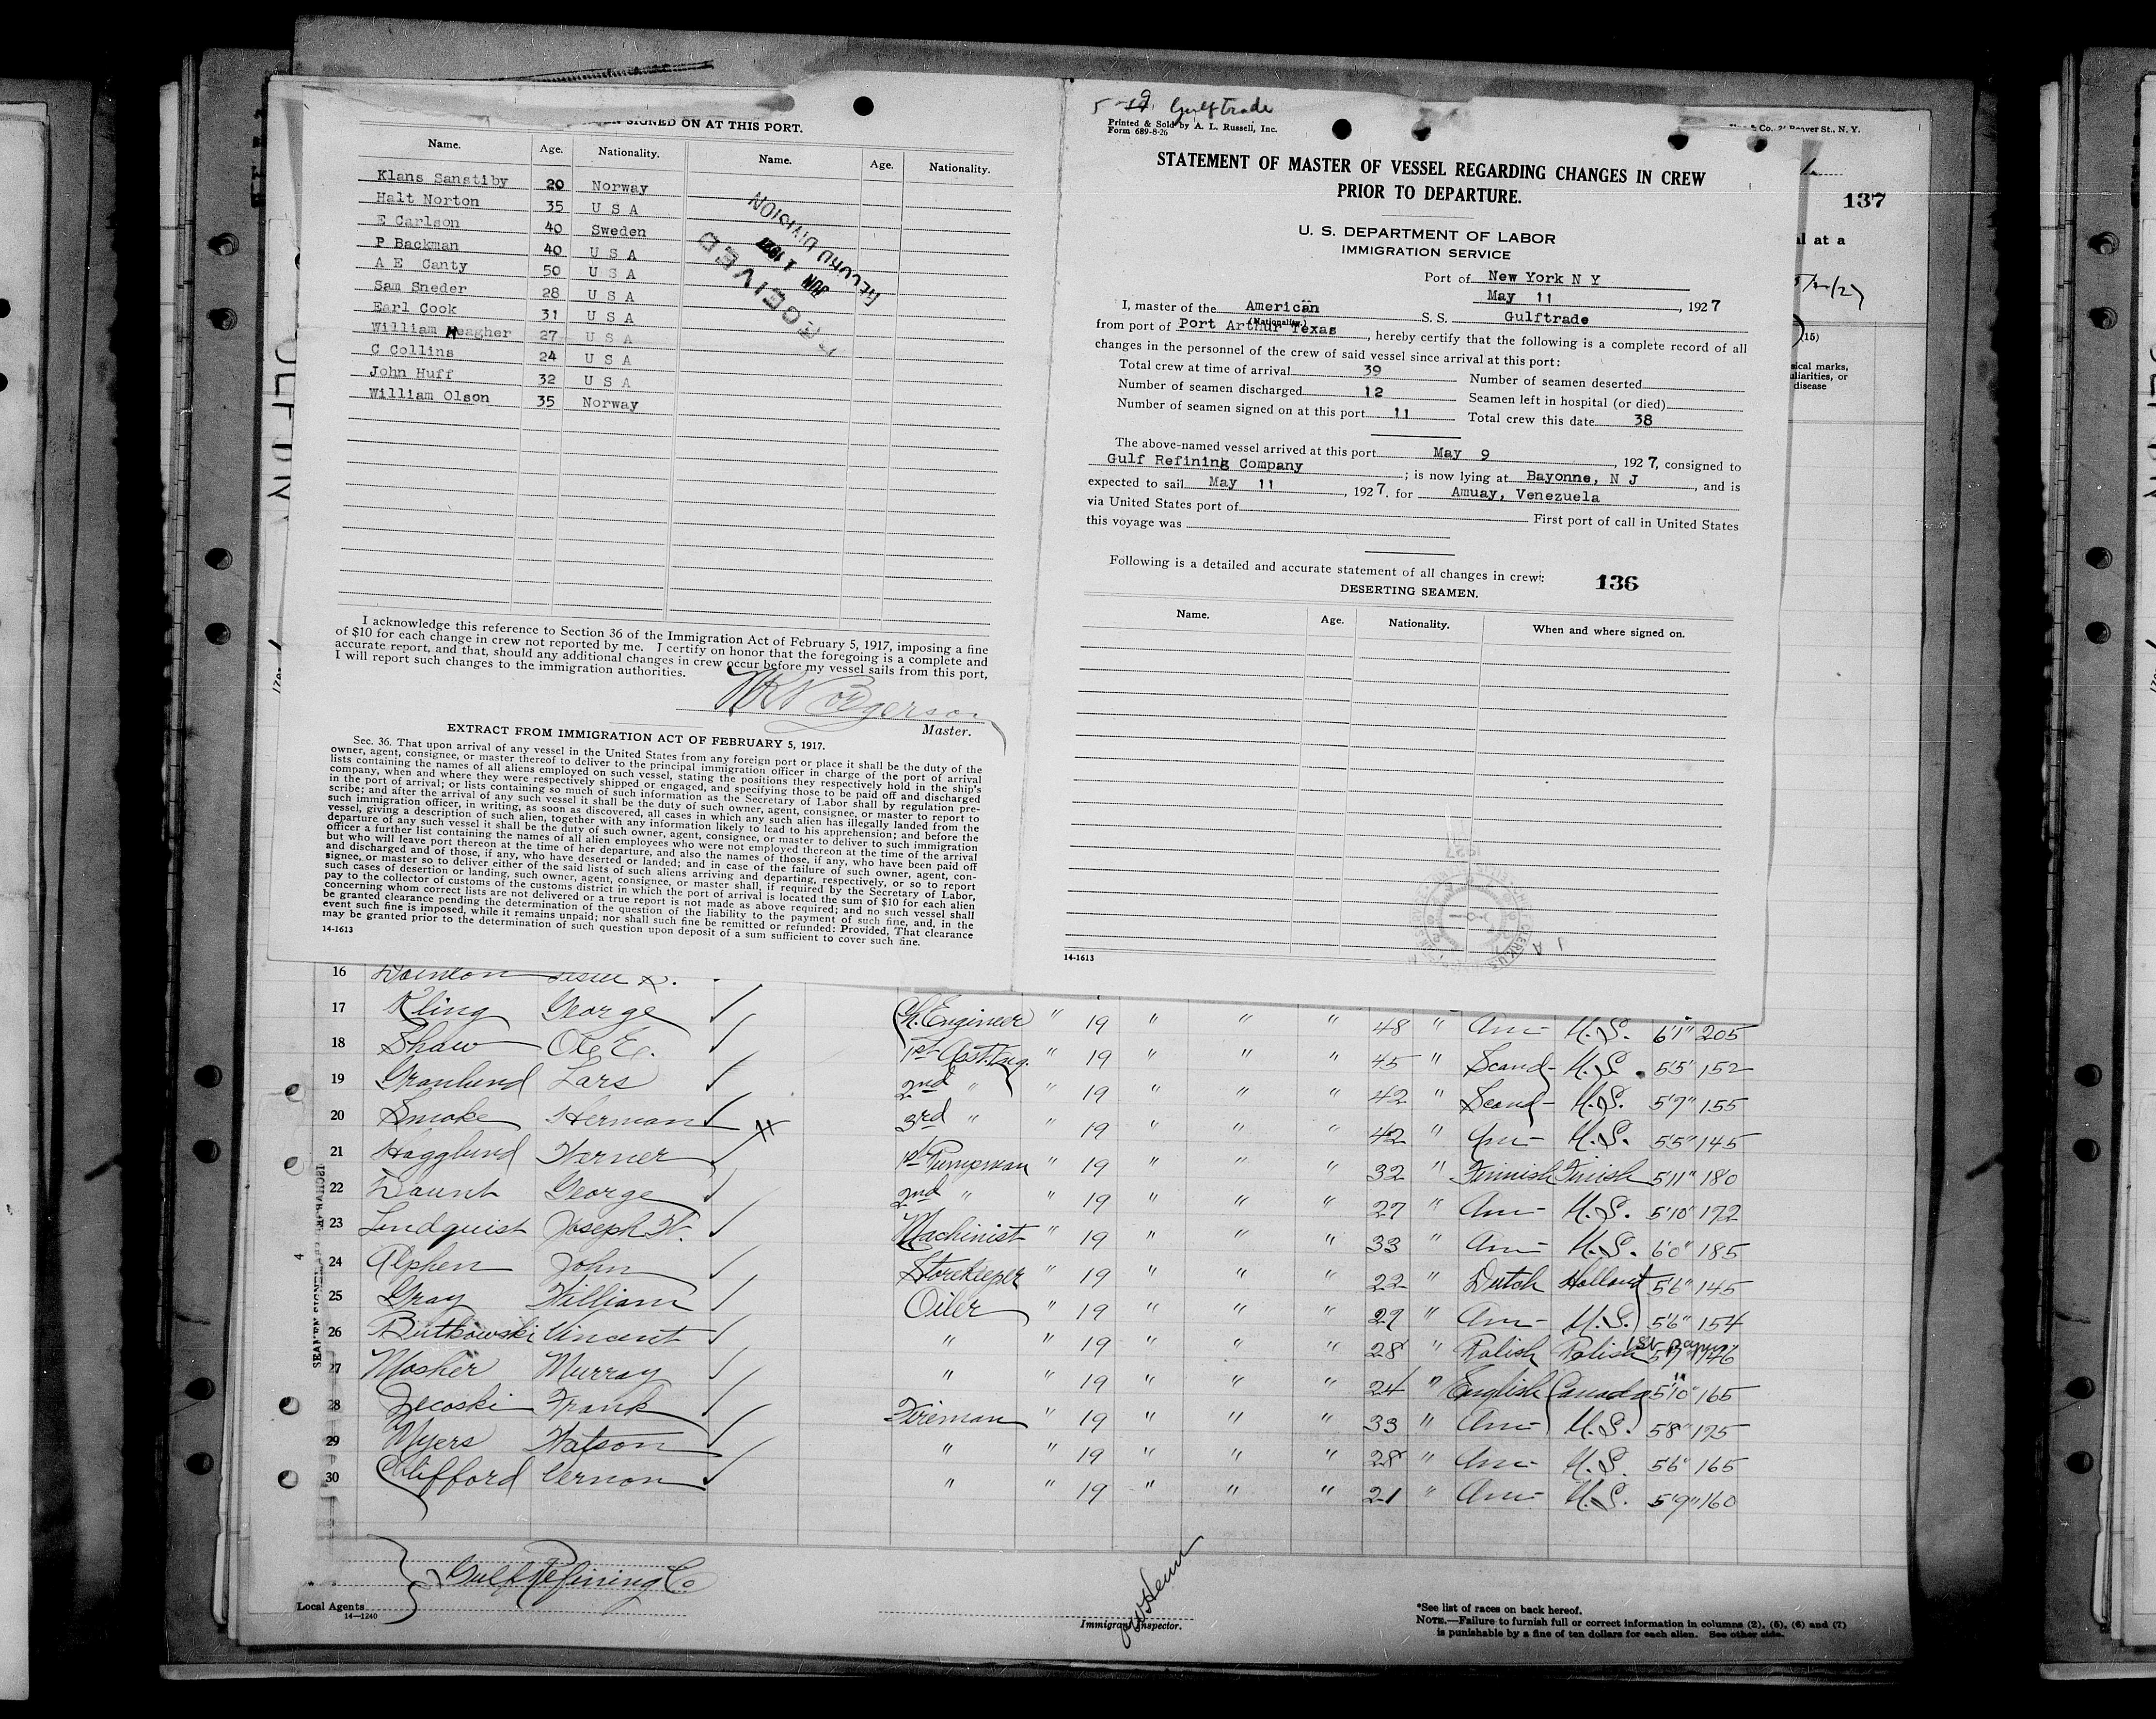 SIGNED ON AT THIS PORT.
Name. Age. Nationality. Name. Age. Nationality.
Klans Sanstiby 20 Norway
Halt Norton 35 U S A
E Carlson 40 Sweden
P Backman 40 U S A
A E Canty 50 U S A
Sam Sneder 28 U S A
Earl Cook 31 U S A
William Meagher 27 U S A
C Collins 24 U S A
John Huff 32 U S A
William Olson 35 Norway
RECEIVED
JUN 1 1927
RECORD DIVISION
I acknowledge this reference to Section 36 of the Immigration Act of February 5, 1917, imposing a fine
of $10 for each change in crew not reported by me. I certify on honor that the foregoing is a complete and
accurate report, and that, should any additional changes in crew occur before my vessel sails from this port,
I will report such changes to the immigration authorities.
Master.
EXTRACT FROM IMMIGRATION ACT OF FEBRUARY 5, 1917.
Sec. 36. That upon arrival of any vessel in the United States from any foreign port or place it shall be the duty of the
owner, agent, consignee, or master thereof to deliver to the principal immigration officer in charge of the port of arrival
lists containing the names of all aliens employed on such vessel, stating the positions they respectively hold in the ship's
company, when and where they were respectively shipped or engaged, and specifying those to be paid off and discharged
in the port of arrival; or lists containing so much of such information as the Secretary of Labor shall by regulation pre-
scribe; and after the arrival of any such vessel it shall be the duty of such owner, agent, consignee, or master to report to
such immigration officer, in writing, as soon as discovered, all cases in which any such alien has illegally landed from the
vessel, giving a description of such alien, together with any information likely to lead to his apprehension; and before the
departure of any such vessel it shall be the duty of such owner, agent, consignee, or master to deliver to such immigration
officer a further list containing the names of all alien employees who were not employed thereon at the time of the arrival
but who will leave port thereon at the time of her departure, and also the names of those, if any, who have been paid off
and discharged and of those, if any, who have deserted or landed; and in case of the failure of such owner, agent, con-
signee, or master so to deliver either of the said lists of such aliens arriving and departing, respectively, or so to report
such cases of desertion or landing, such owner, agent, consignee, or master shall, if required by the Secretary of Labor,
pay to the collector of customs of the customs district in which the port of arrival is located the sum of $10 for each alien
concerning whom correct lists are not delivered or a true report is not made as above required; and no such vessel shall
be granted clearance pending the determination of the question of the liability to the payment of such fine, and, in the
event such fine is imposed, while it remains unpaid; nor shall such fine be remitted or refunded: Provided, That clearance
may be granted prior to the determination of such question upon deposit of a sum sufficient to cover such fine.
14-1613
Gulftrade
Printed & Sold by A. L. Russell, Inc.
Form 689-8-26
STATEMENT OF MASTER OF VESSEL REGARDING CHANGES IN CREW
PRIOR TO DEPARTURE.
U. S. DEPARTMENT OF LABOR
IMMIGRATION SERVICE
Port of New York N Y
May 11, 1927
I, master of the American S. S. Gulftrade
(Nationality.)
from port of Port Arthur Texas, hereby certify that the following is a complete record of all
changes in the personnel of the crew of said vessel since arrival at this port:
Total crew at time of arrival 39 Number of seamen deserted
Number of seamen discharged 12 Seamen left in hospital (or died)
Number of seamen signed on at this port 11 Total crew this date 38
The above-named vessel arrived at this port May 9, 1927, consigned to
Gulf Refining Company; is now lying at Bayonne, N J, and is
expected to sail May 11, 1927. for Amuay, Venezuela
via United States port of First port of call in United States
this voyage was
Following is a detailed and accurate statement of all changes in crew: 136
DESERTING SEAMEN.
Name. Age. Nationality. When and where signed on.
14-1613
Beaver St., N. Y.
137
al at a
(15)
sical marks,
uliarities, or
disease
16
17 Kling George Ch. Engineer " 19 " " " 48 " Am- U.S. 6'1" 205
18 Shaw Ole E. 1st Asst Eng. " 19 " " " 45 " Scand- U.S. 5'5" 152
19 Granlund Lars 2nd " " 19 " " " 42 " Scand- U.S. 5'7" 155
20 Smoke Herman 3rd " " 19 " " " 42 " Am- U.S. 5'5" 145
21 Hagglund Werner 1st Pumpman " 19 " " " 32 " Finnish Finish 5'11" 180
22 Daunt George 2nd " " 19 " " " 27 " Am- U.S. 5'10" 172
23 Lindquist Joseph W. Machinist " 19 " " " 33 " Am- U.S. 6'0" 185
24 Alphen John Storekeeper " 19 " " " 22 " Dutch Holland 5'6" 145
25 Gray William Oiler " 19 " " " 27 " Am- U.S. 5'6" 154
26 Butkowski Vincent " " 19 " " " 28 " Polish Polish 1st papers 5'7" 146
27 Mosher Murray " " 19 " " " 24 " English Canada 5'10" 165
28 Jecoski Frank Fireman " 19 " " " 33 " Am- U.S. 5'8" 175
29 Myers Watson " " 19 " " " 28 " Am- U.S. 5'6" 165
30 Clifford Vernon " " 19 " " " 21 " Am- U.S. 5'9" 160
Gulf Refining Co
Local Agents
14—1240
Immigrant Inspector.
*See list of races on back hereof.
NOTE.—Failure to furnish full or correct information in columns (2), (5), (6) and (7)
is punishable by a fine of ten dollars for each alien. See other side.